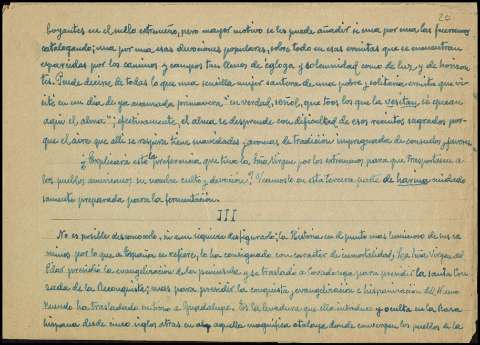 20
boyantes en el suelo extremeño, pero mayor motivo se les puede añadir si una por una las fueramos
catalogando; una por una esas devociones populares, sobre todo en esas ermitas que se encuentran
esparcidas por los caminos y campos tan llenos de egloga y solemnidad como de luz y de horizon-
tes. Puede decirse de todas lo que una sencilla mujer santera de una pobre y solitaria ermita que vi-
sité en un dia de ya avanzada primavera "en verdad, señol, que toos los que la vesitan se epean
aqui el alma"; efectivamente, el alma se desprende con dificultad de esos recintos sagrados por-
que el aire que alli se respira tiene suavidades y aromas de tradición impregnada de consuelos y favores
¿Explicará esta la preferencia, que tuvo la Sma Virgen por los extremeños para que trasportasen a
los pueblos americanos su nombre culto y devoción? Veamoslo en esta tercera parte de harina cuidado
samente preparada para la fermentación.
III
No es posible desconocerlo, ni aun siquiera desfigurarlo; la Historia en el punto mas luminoso de sus ca
minos por lo que a España se refiere, lo ha consignado con caracter de inmortalidad; La Sma Virgen del
Pilar presidió la evangelización de la peninsula y se trasladó a Covadonga para presidir la santa Cru
zada de la Reconquista; mas para presidir la conquista, evangelización e hispanización del Nuevo
Mundo ha trasladado su trono a Guadalupe. Es la levadura que ella introduce y oculta en la Raza
hispana desde cinco siglos atras en aquella magnifica atalaya donde convergen los pueblos de la